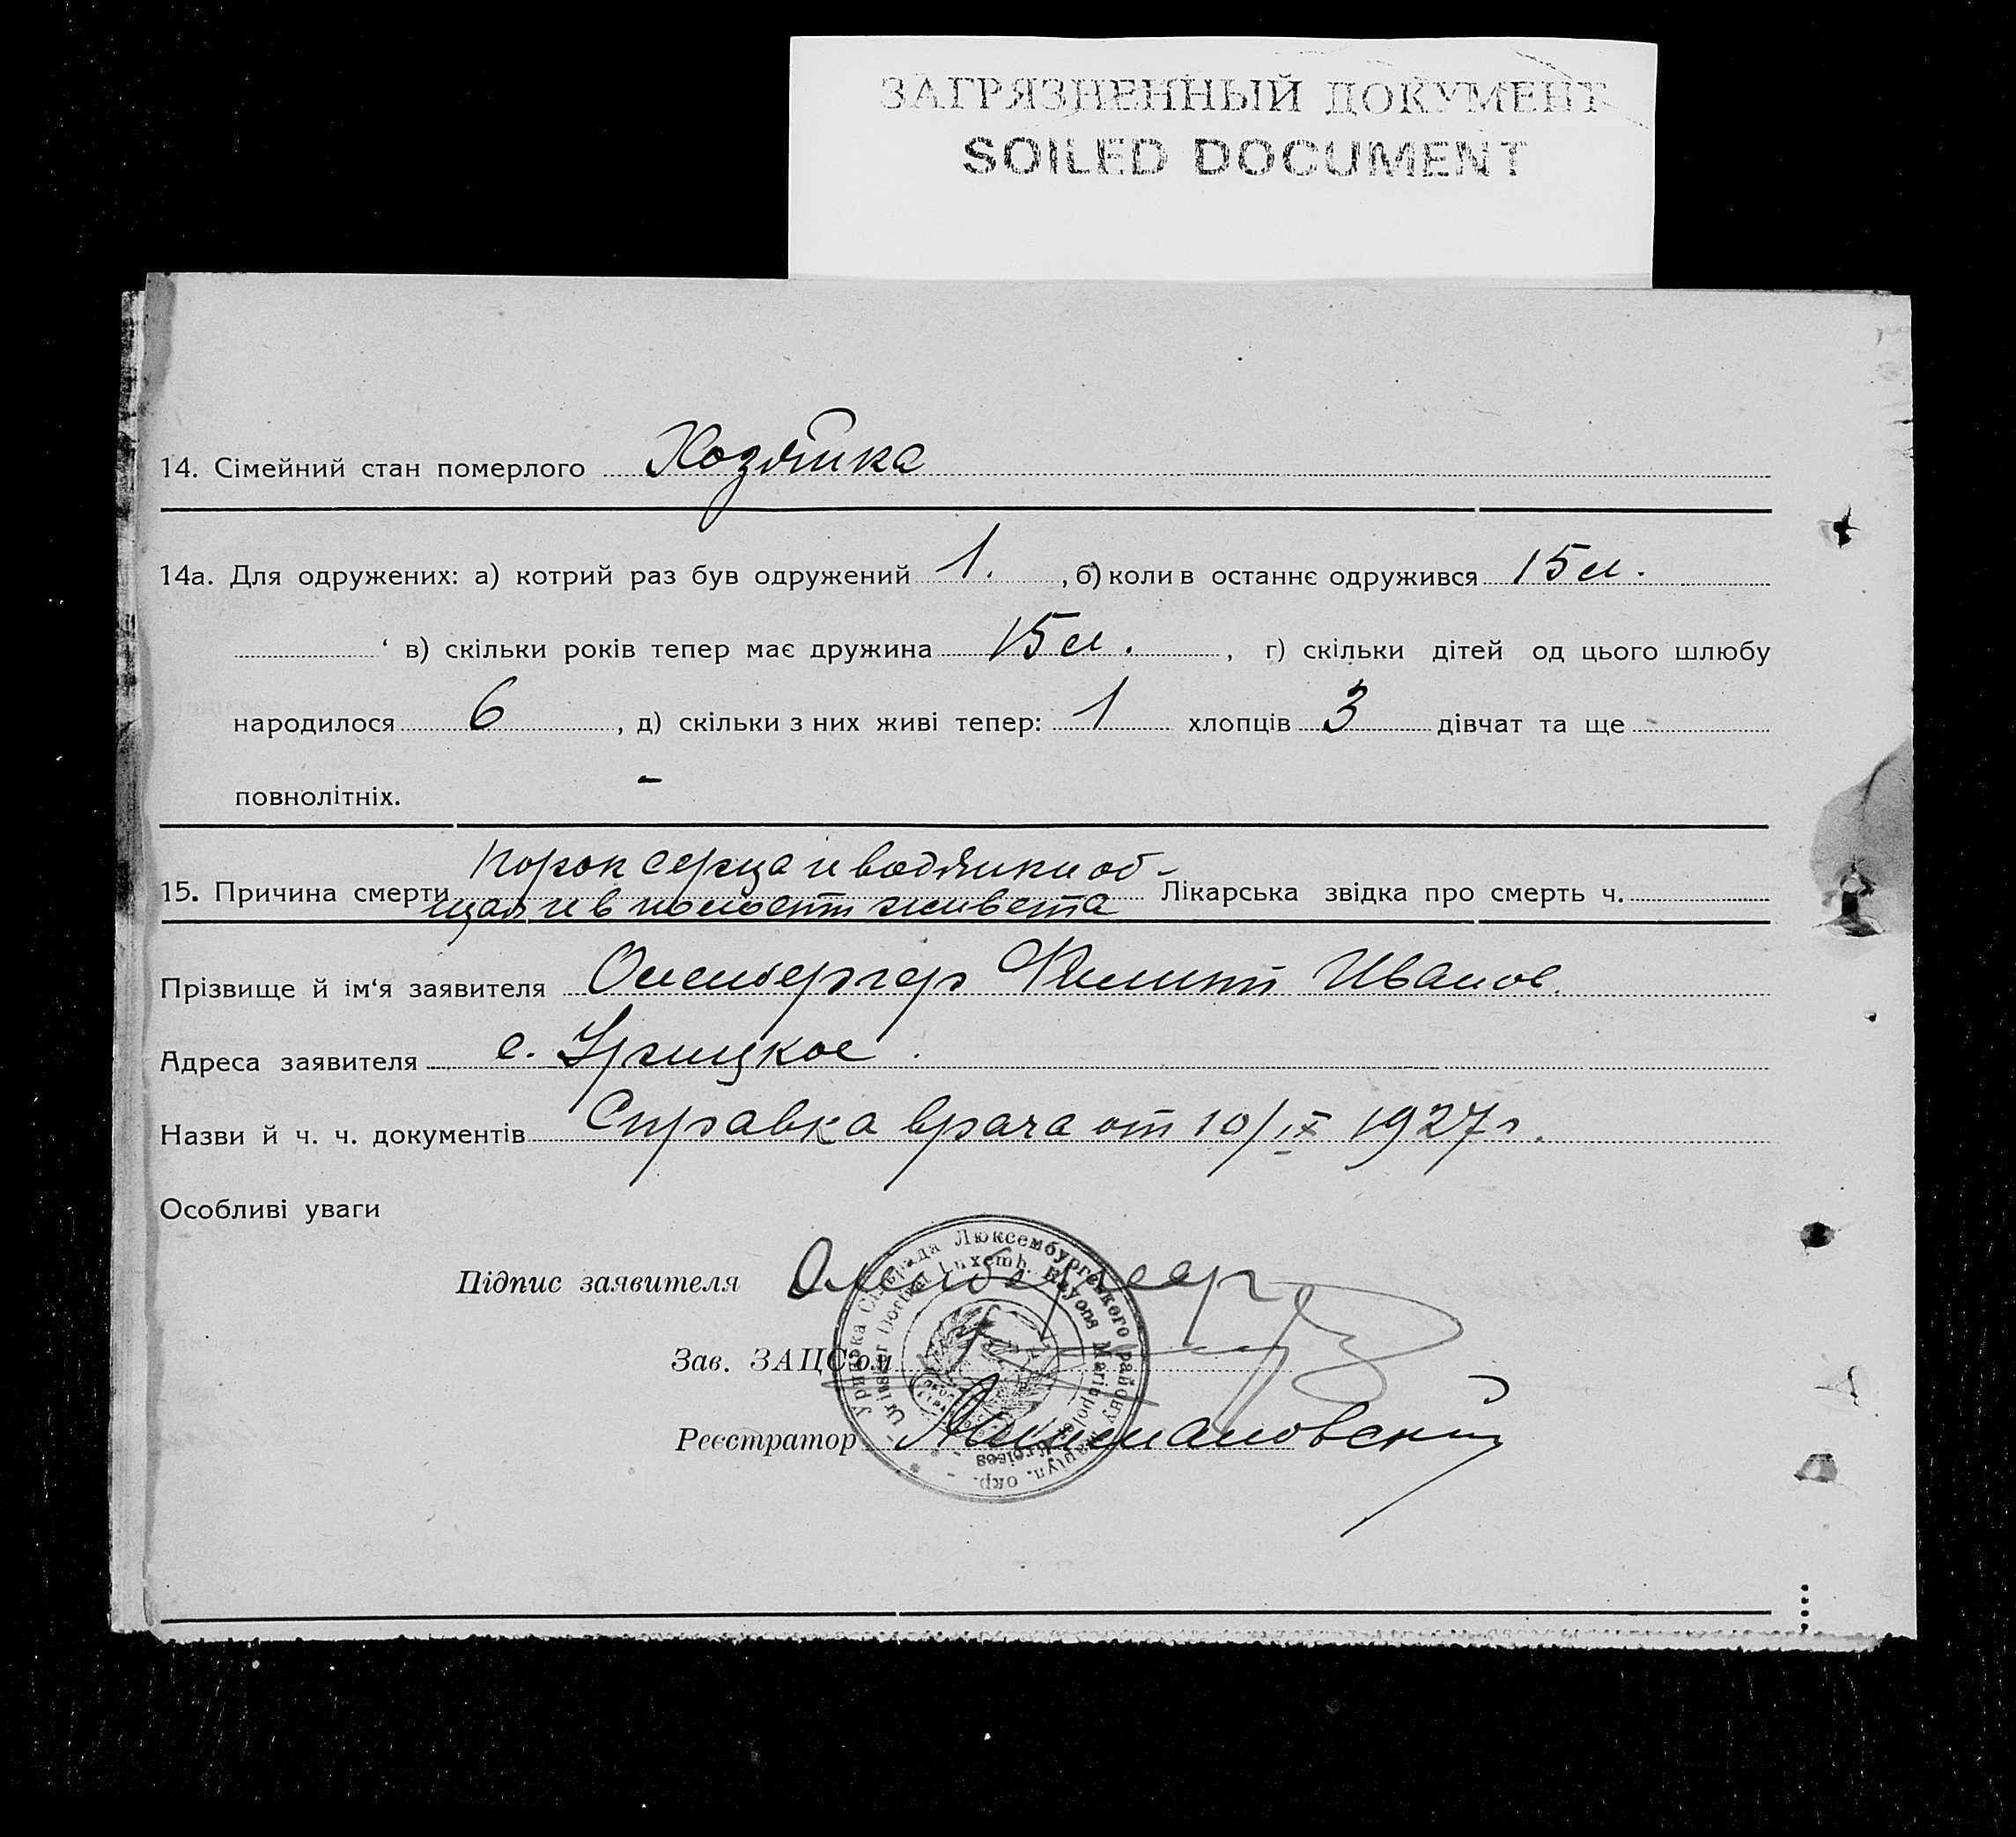 ЗАГРЯЗНЕННЫЙ ДОКУМЕНТ
SOILED DOCUMENT
14. Сімейний стан померлого Хозяйка
14а. Для одружених: а) котрий раз був одружений 1. , б) коли в останнє одружився 15 л.
в) скільки років тепер має дружина 15 л. , г) скільки дітей од цього шлюбу
народилося 6 , д) скільки з них живі тепер: 1 хлопців 3 дівчат та ще
повнолітніх. -
порок серца и водянки об-
15. Причина смерти Лікарська звідка про смерть ч.
щая и в полости живота
Прізвище й ім'я заявителя Оленбергер Филипп Иванов.
Адреса заявителя с. Урицкое.
Назви й ч. ч. документів Справка врача от 10/IX 1927 г.
Особливі уваги
Підпис заявителя Оленбергер
Зав. ЗАЦС'ом
Реєстратор
Урицька Сільрада Люксембургського Району Маріуп. окр.
Luxemb. Rayons Mariupoler Kreises